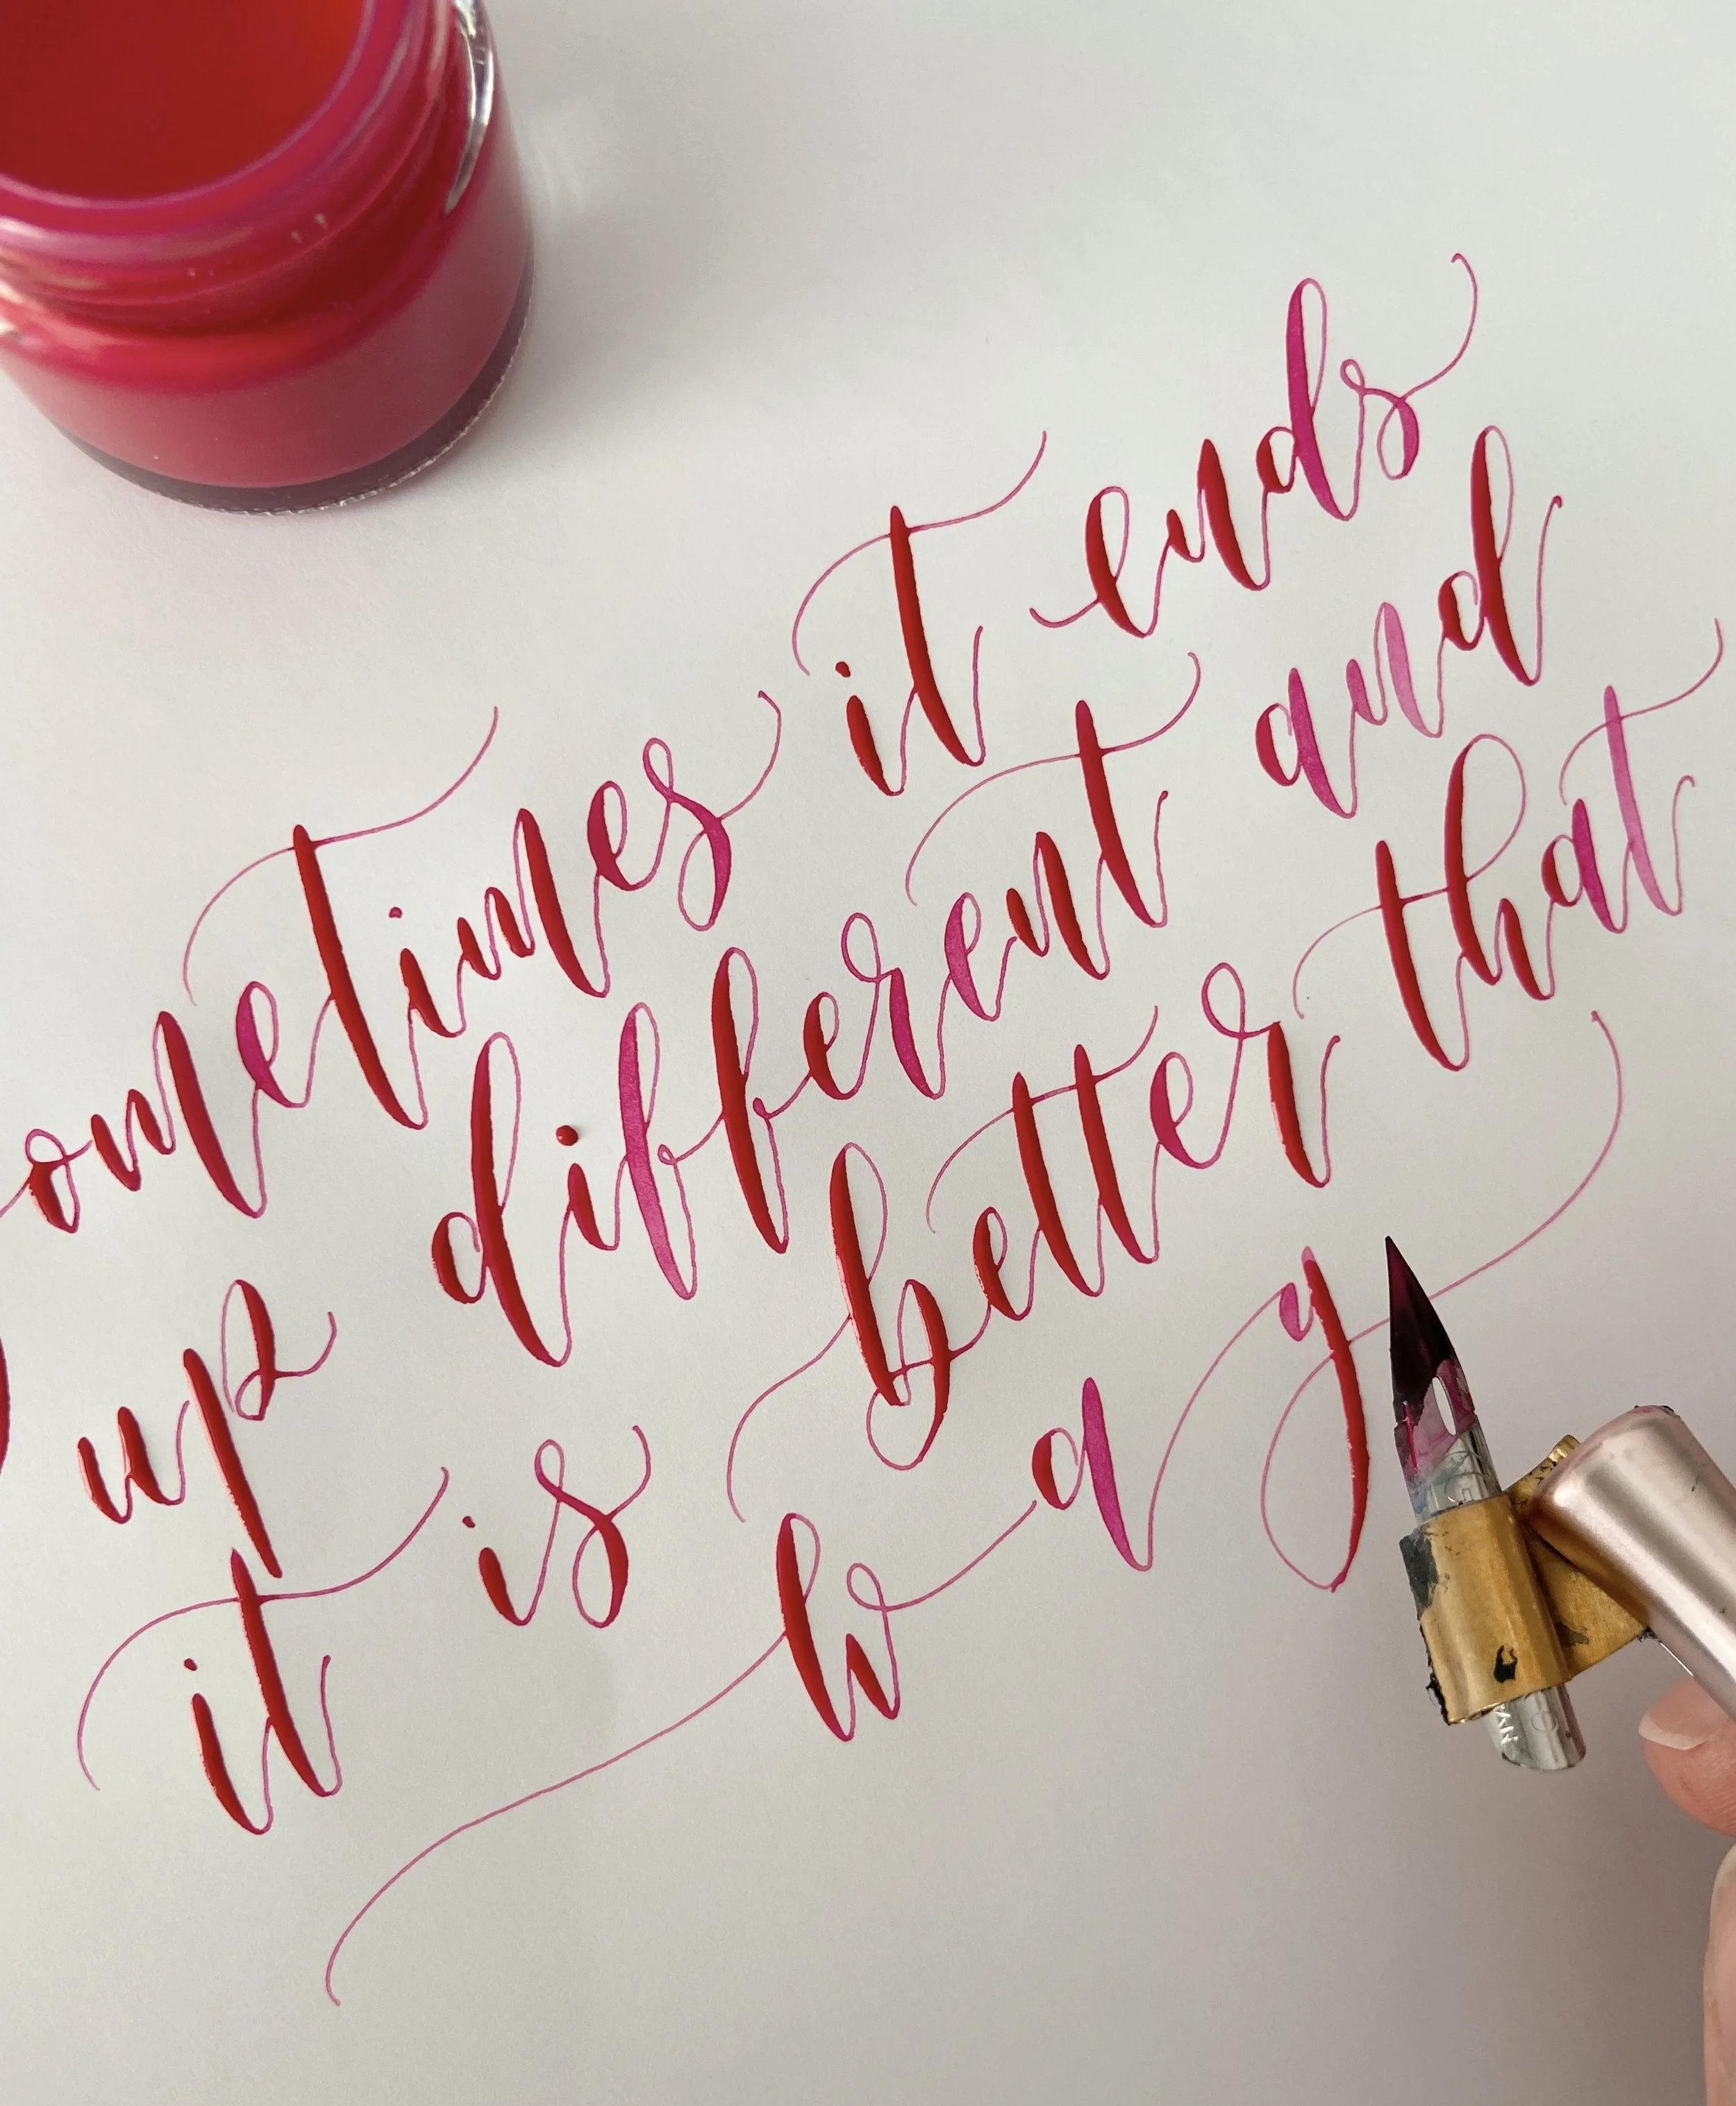 ometimes it ends
up different and
it is better that
way